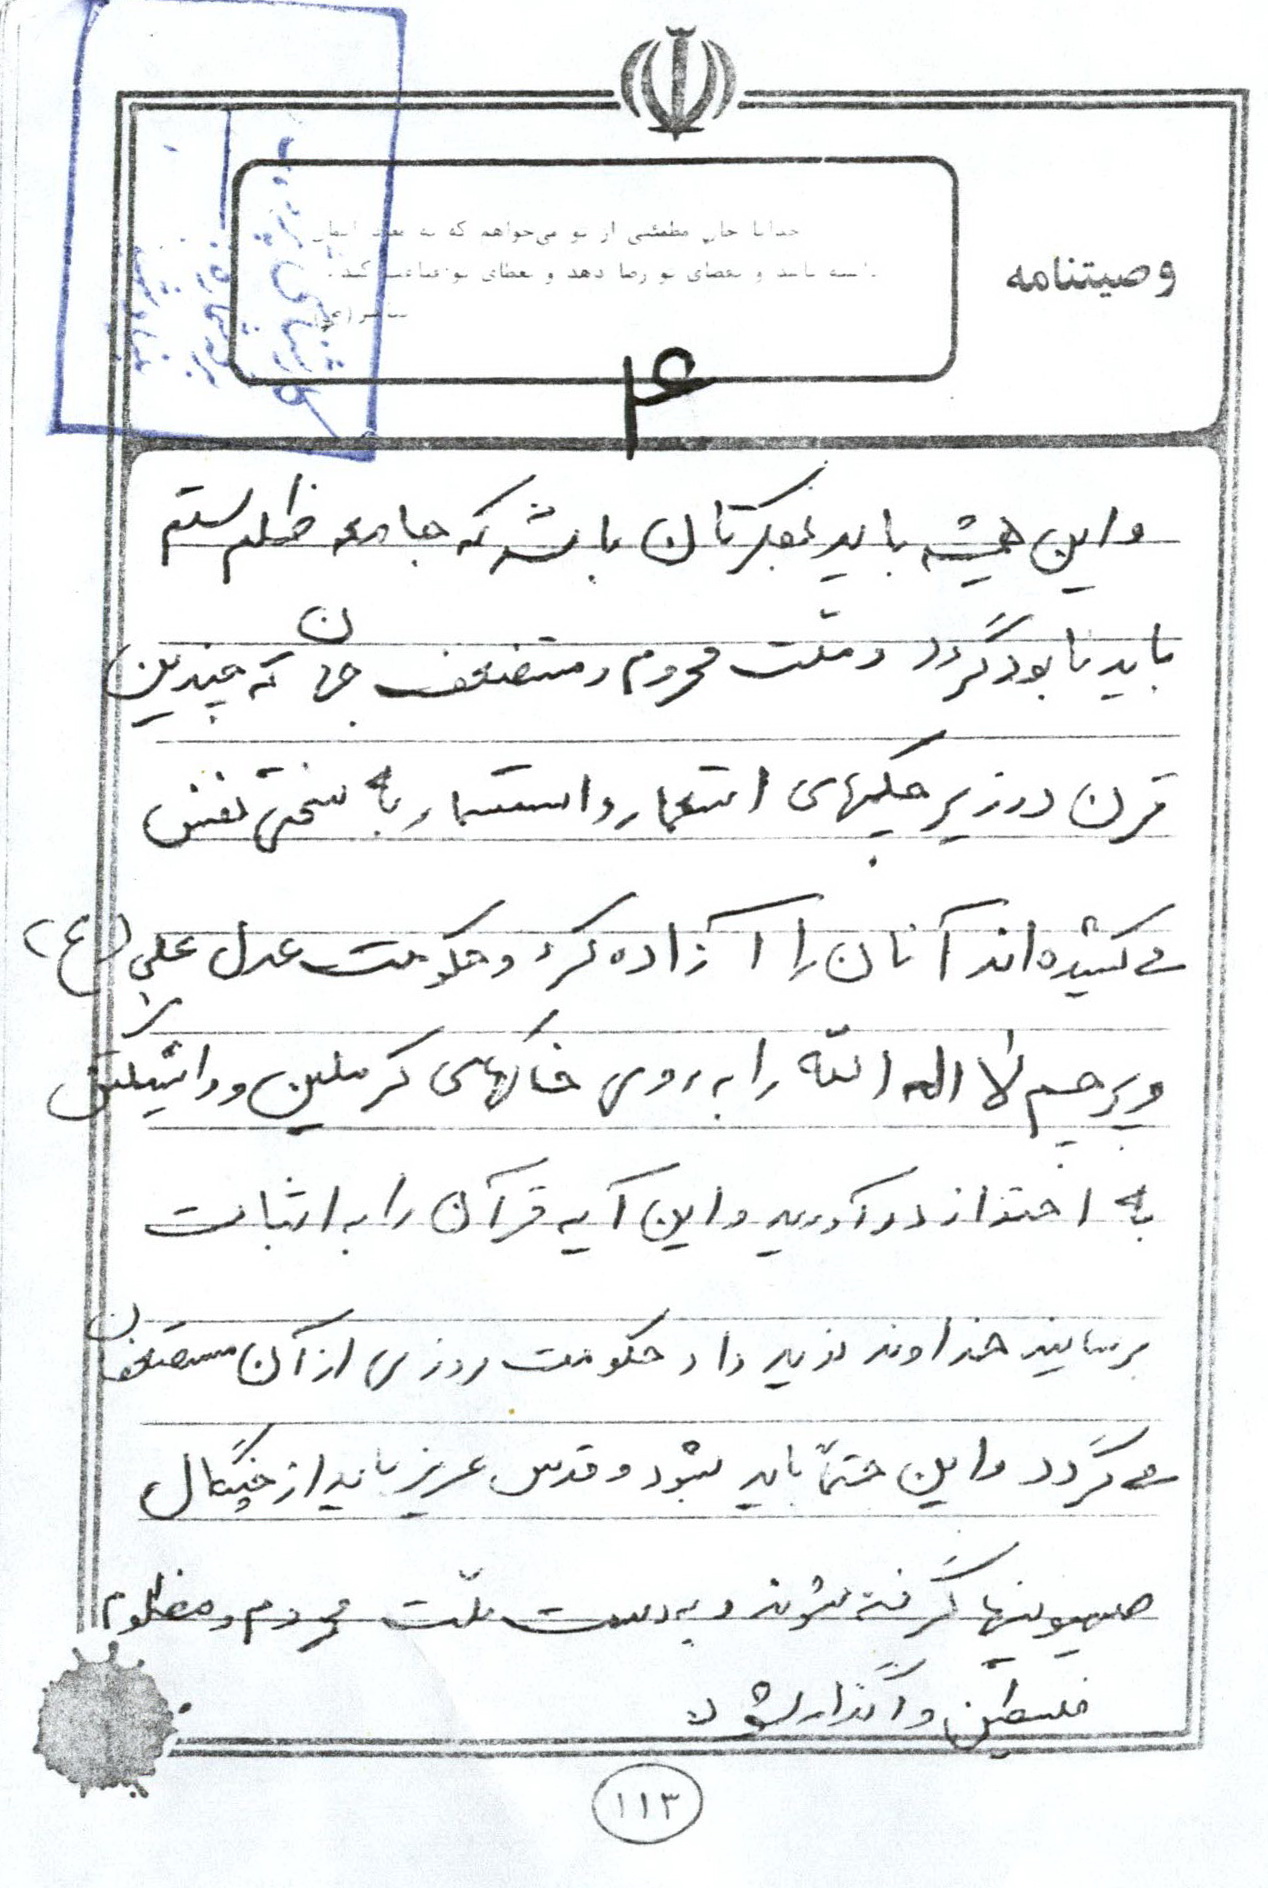 وصیتنامه
خدایا جان مطمئنی از تو می‌خواهم که به
و بعطای تو رضا دهد و بعطای تو قناعت کند.
۴
و این همیشه باید بفکرتان باشد که جامعه ظلم ستم
باید نابود گردد و ملّت محروم و متضعف جهان که چندین
قرن در زیر چکمهای استعمار و استثمار به سختی نفس
می کشیده اند آنان را آزاده کرد و حکومت عدل علی (ع)
و پرچم لا اله الا الله را به روی خاکهای کرملین و واشنگتن
به اهتزاز در آورید و این آیه قرآن را به اثبات
برسانید خداوند نوید داد حکومت روزی از آن مستضعفان
می گردد و این حتماً باید بشود و قدس عزیز باید از چنگال
صهیونیها گرفته شوند و به دست ملّت محروم و مظلوم
فلسطین واگذار شود
۱۱۳